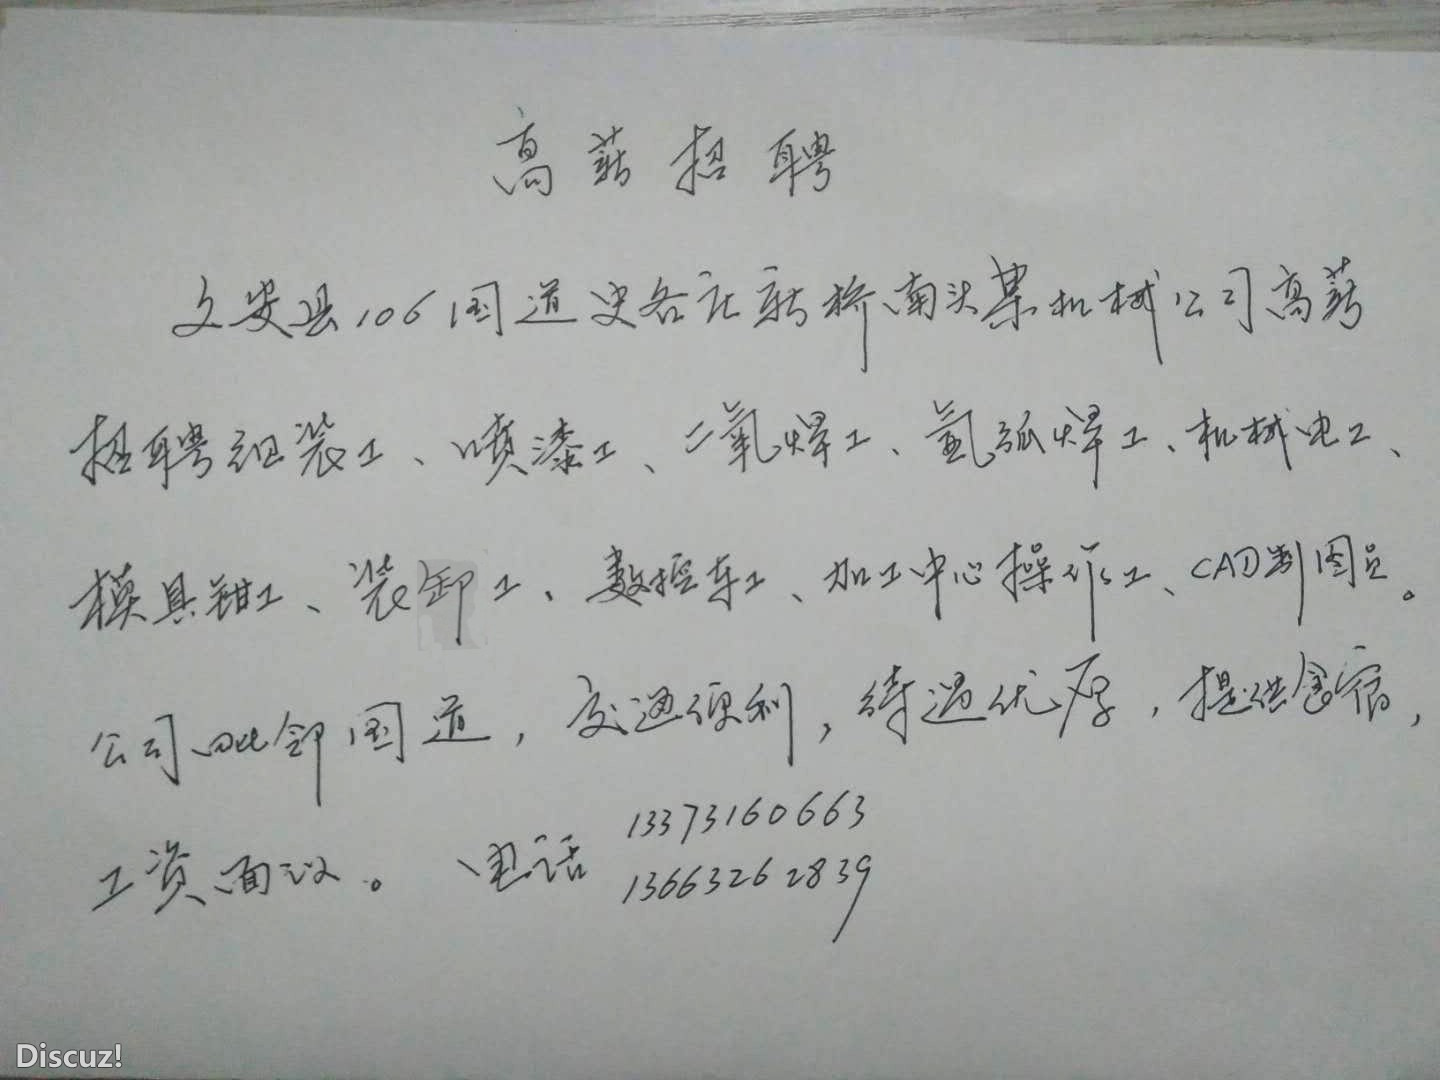 高薪招聘
文安县106国道史各庄新桥南头某机械公司高薪
招聘组装工、喷漆工、二氧焊工、氩弧焊工、机械电工、
模具钳工、装卸工、数控车工、加工中心操作工、CAD制图员。
公司毗邻国道，交通便利，待遇优厚，提供食宿，
工资面议。 电话 13373160663
13663262839
Discuz!